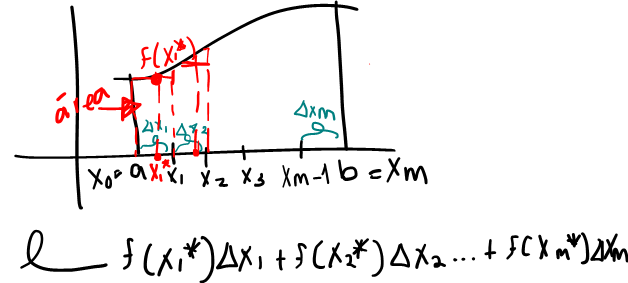 f(x₁*)
área
Δx₁ Δx₂ Δxm
x₀ = a x₁* x₁ x₂ x₃ xm-1 b = xm
f(x₁*)Δx₁ + f(x₂*)Δx₂ ... + f(xm*)Δxm